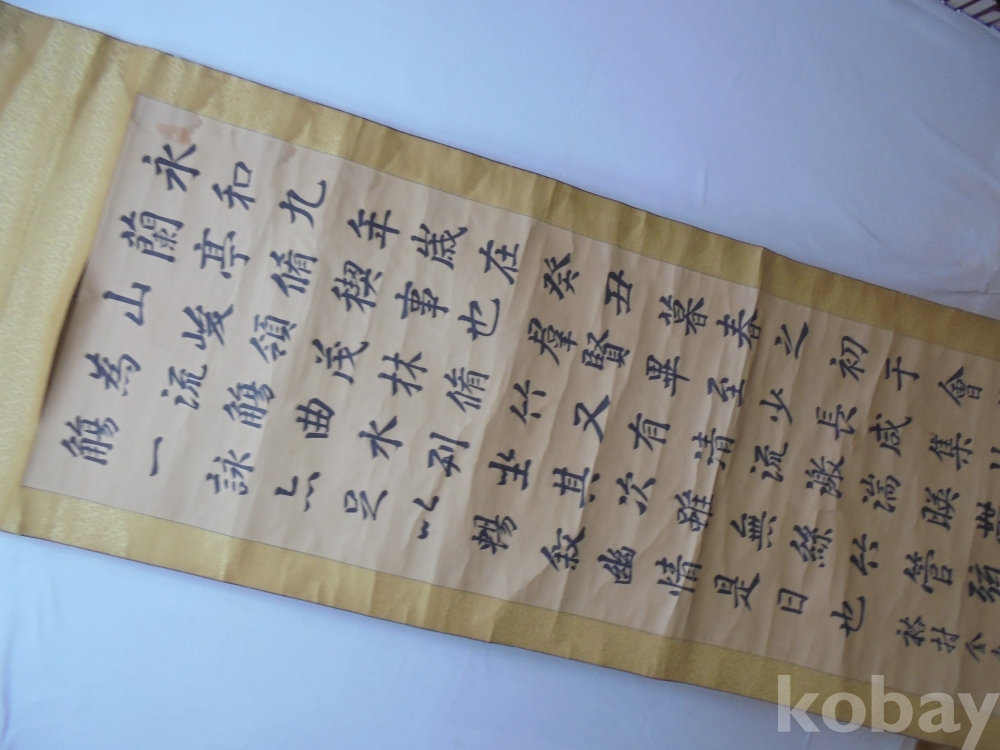 永和九年歲在癸丑暮春之初于會
蘭亭脩稧事也羣賢畢至少長咸集
山峻領茂林脩竹又有清流激湍暎
為流觴曲水列坐其次雖無絲竹管弦
觴一詠亦足以暢敘幽情是日也
裕村金
kobay